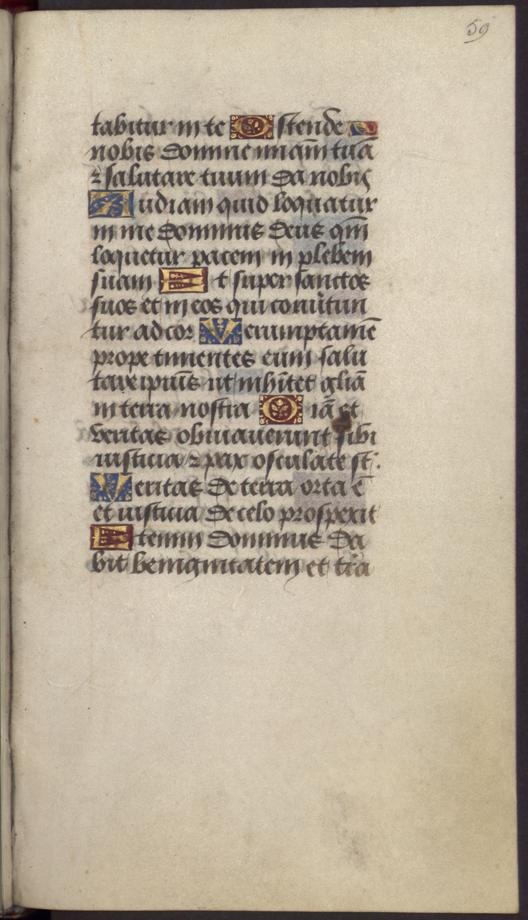 59
tabitur in te Ostende
nobis domine miam̄ tuā
⁊ salutare tuum da nobis
Audiam quid loquatur
in me dominus deus qm̄
loquetur pacem in plebem
suam Et super sanctos
suos et in eos qui conūtun
tur ad cor Verumptamē
prope timentes eum salu
tare ipius̄ ut inhītet gliā
in terra nostra Miā et
veritas obuiauerunt sibi
iusticia ⁊ pax osculate st̄.
Veritas de terra orta ē
et iusticia de celo prospexit
Etenim dominus da
bit benignitatem et tr̄a